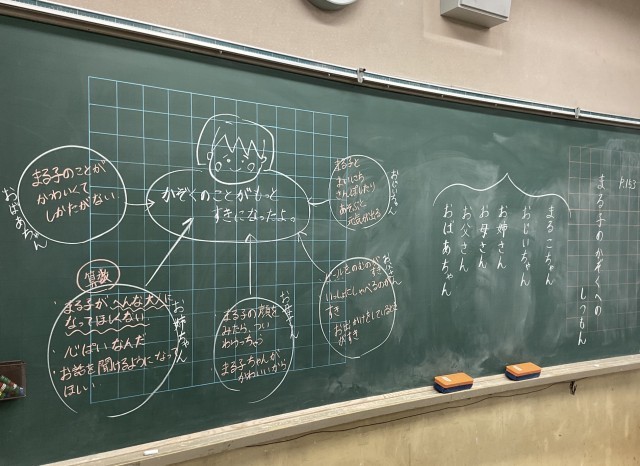 P.193
まる子のかぞくへの
しつもん
まるこちゃん
おじいちゃん
お姉さん
お母さん
お父さん
おばあちゃん
かぞくのことがもっと
すきになったよ。
おじいちゃん
まる子と
まいにち
さんぽしたり
あそぶと
元気が出る
まる子のことが
かわいくて
しかたがない
おばあちゃん
ビールをのむのが
すき
いっしょにしゃべるのが
すき
お出かけをしている
がすき
まる子の顔を
みたら、つい
わらっちゃう
まる子ちゃんが
かわいいから
お姉ちゃん
算数
・まる子がへんな大人に
なってほしくない
・心ぱいなんだ
・お話を聞けるようになって
ほしい